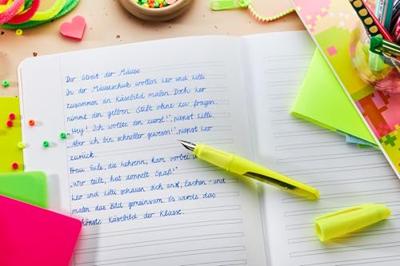 Der Streit der Mäuse
In der Mäuseschule wollten Leo und Lilli
zusammen ein Käsebild malen. Doch Leo
nimmt den gelben Stift ohne zu fragen.
„Hey! Ich wollte den zuerst!", piepst Lilli.
„Aber ich bin schneller gewesen!", piepst Leo
zurück.
Frau Eule, die Lehrerin, kam vorbei
„Wer teilt, hat doppelt Spaß!"
Leo und Lilli schauen sich an, lachen und
malen das Bild gemeinsam. Es wurde das
schönste Käsebild der Klasse.